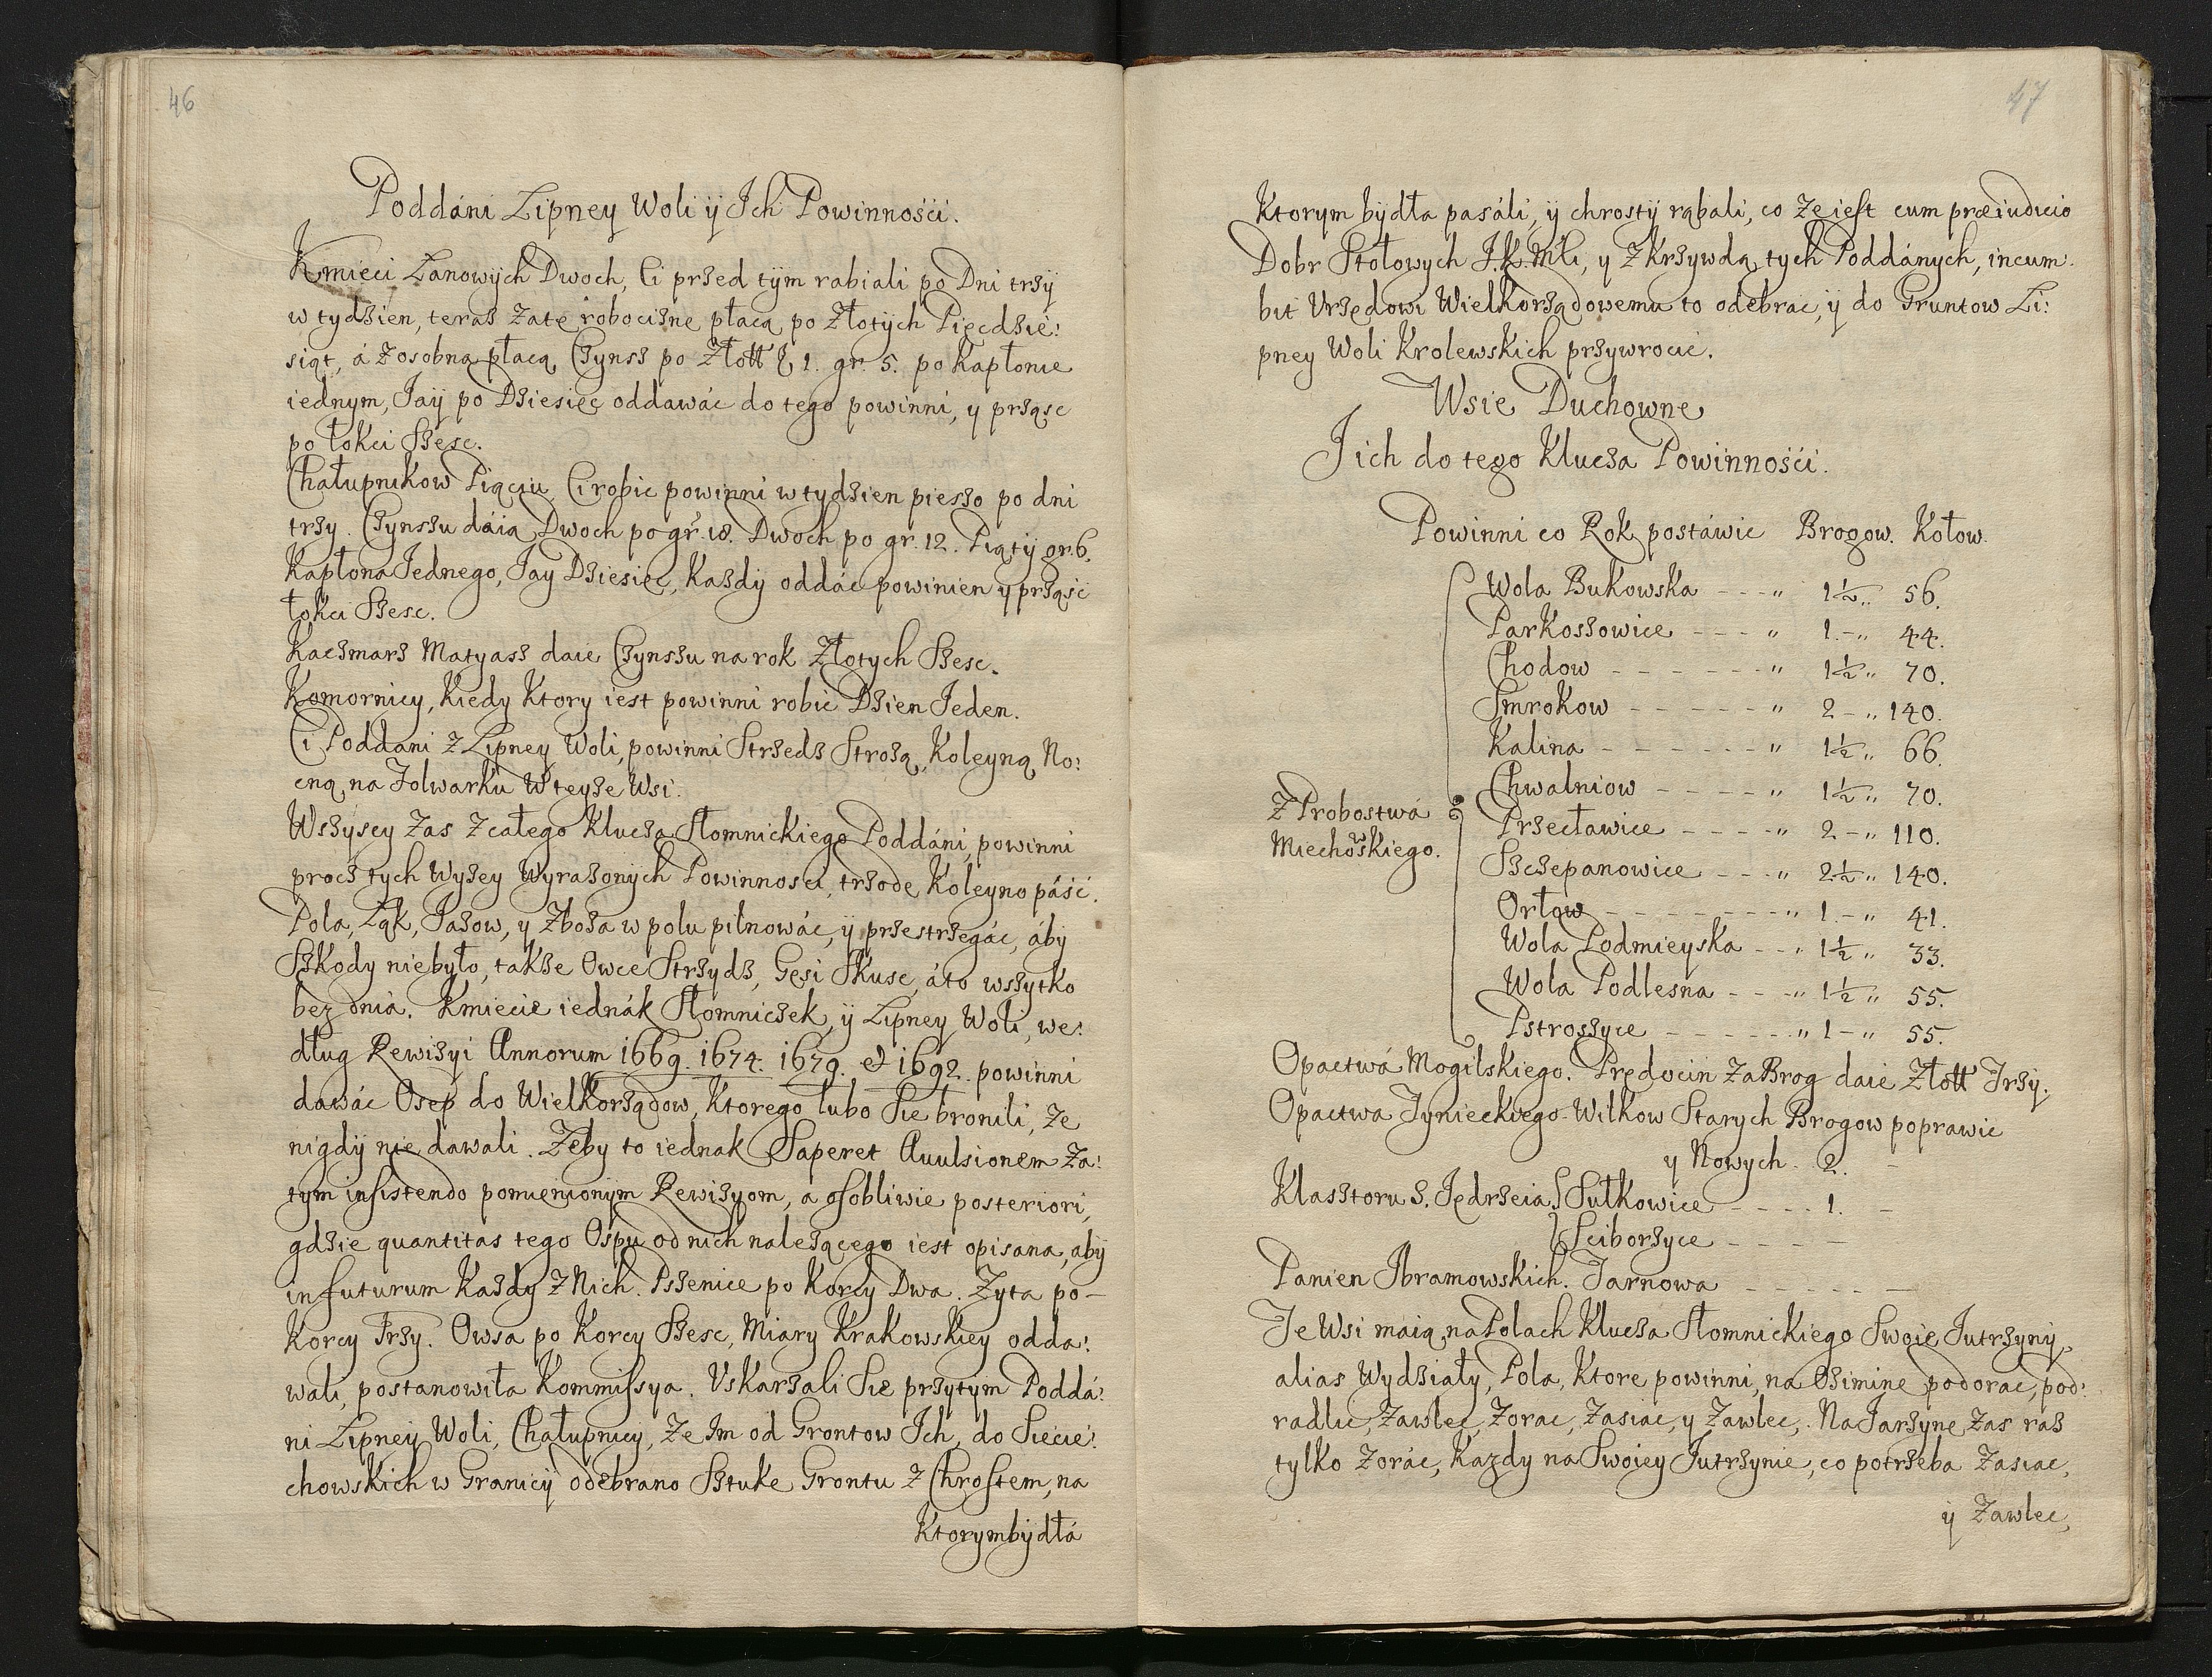 46
Poddáni Lipney Woli ÿ Jch Powinnośći.
Kmieci Łanowÿch Dwoch, Ci przed tÿm rabiali po Dni trzÿ
w tydzien, teraz zatę robociznę płacą po Złotÿch Pięcdzie:
siąt, á zosobna płacą Czÿnsz po Złott 1. gr. 5. po Kapłonie
iednym, Jaÿ po Dziesięc oddawác do tego powinni, y prząsc
po łokci Szesc.
Chałupnikow Piąciu, Ci robic powinni w tydzien pieszo po dni
trzy. Czynszu dáią Dwoch po gr. 18. Dwoch po gr. 12. Piątÿ gr. 6.
Kapłona Jednego, Jay Dziesięc, Kazdÿ oddác powinien y prząść
łokci Szesc.
Kaczmarz Matyasz daie Czynszu na rok Złotych Szesc.
Komornicy, Kiedy Ktory iest powinni robic Dzien Jeden.
Ci Poddani z Lipney Woli, powinni Strzedz Strożą, Koleyną No:
cną na Folwarku w teyze Wsi.
Wszyscy zas z całego Klucza Słomnickiego Poddáni, powinni
procz tych Wyżey Wyrazonych Powinnosci, trzodę Koleyno páść.
Pola, Łąk, Jazow, y Zboza w polu pilnowác, ÿ przestrzegác, ábÿ
Szkody niebyło, takze Owce Strzydz, Gęsi Skusc, áto wszytko
bez dniá. Kmiecie iednák Słomniczek, ÿ Lipney Woli, we:
dług Rewizyi Annorum 1669. 1674. 1679. & 1692. powinni
dawác Osep do Wielkorządow, Ktorego lubo Się bronili, że
nigdÿ nie dawali. Zeby to iednak Saperet Auulsionem Za:
tym insistendo pomienionÿm Rewizyom, a osobliwie posteriori,
gdzie quantitas tego Ospu od nich nalezącego iest opisana, abÿ
in futurum Kazdy z Nich. Pszenice po Korcy Dwa. Zyta po –
Korcy Trzy. Owsa po Korcy Szesc, Miary Krakowskiey odda:
wali, postanowiła Kommissya. Vskarzali Się przytÿm Poddá:
ni Lipney Woli, Chałupnicy, Ze Jm od Grontow Jch, do Siecie:
chowskich w Granicÿ odebrano Sztukę Grontu z Chrostem, na
Ktorym bÿdłá
47
Ktorym bÿdła pasáli, ÿ chrostÿ rąbali, co że iest cum præiudicio
Dobr Stołowych J. K. Mśli, y z Krzywdą tych Poddánych, incum:
bit Vrzędowi Wielkorządowemu to odebrac, ÿ do Gruntow Li:
pney Woli Krolewskich przywrocić.
Wsie Duchowne
J ich do tego Klucza Powinnośći.
Powinni co Rok postáwic Brogow. Kołow.
Wola Bukowska - - - " 1½ " 56.
Parkoszowice - - - " 1. - " 44.
Chodow - - - - - - - " 1½ " 70.
Smrokow - - - - - " 2 - " 140.
Kalina - - - - - - - " 1½ " 66.
Chwalniow - - - - - " 1½ " 70.
Z Probostwá
Miechowskiego.
Przecławice - - - - " 2 - " 110.
Szczepanowice - - - " 2½ " 140.
Orłow - - - - - - - - " 1. - " 41.
Wola Podmieyska - - " 1½ " 33.
Wola Podlesna - - - " 1½ " 55.
Pstroszyce - - - - - - " 1 - " 55.
Opactwá Mogilskiego. Prędocin Za Brog daie Złott Trzÿ.
Opactwa Tynieckiego - Wilkow Starych Brogow poprawic
y Nowych. 2. -
Klasztoru S. Jędrzeia. Sułkowice - - - - 1. -
Sciborzyce - - - - -
Panien Jbramowskich. Tarnowa - - - - - -
Te Wsi máią, na Polach Klucza Słomnickiego Swoie Jutrzynÿ,
alias Wydziały, Pola, Ktore powinni, na Ozimine podorac, pod:
radlic, Zawlec, Zorac, Zasiac, y Zawlec. Na Jarzyne zas raz
tylko Zorác, Każdy na Swoiey Jutrzynie, co potrzeba Zasiac,
ÿ Zawlec,